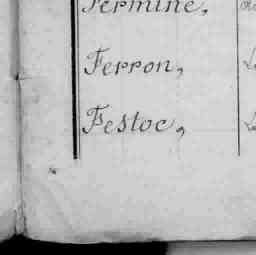 Fermine,
Ferron,
Festoc,